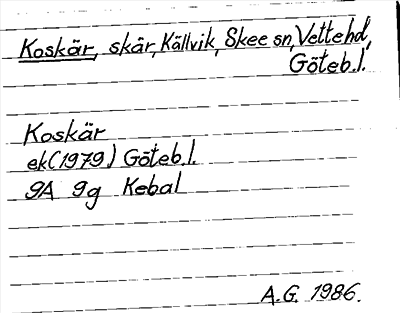 Koskär, skär, Källvik, Skee sn, Vettehd,
Göteb.l.
Koskär
ek(1979) Göteb.l.
9A 9g Kebal
A.G. 1986.